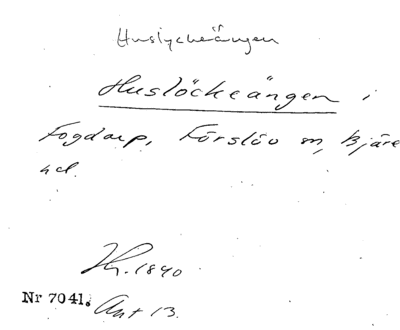 Huslyckeängen
Huslöckeängen i
Fogdarp, Förslöv m, Bjäre
hd.
Hr. 1840
Nr 7041. Ant 13.